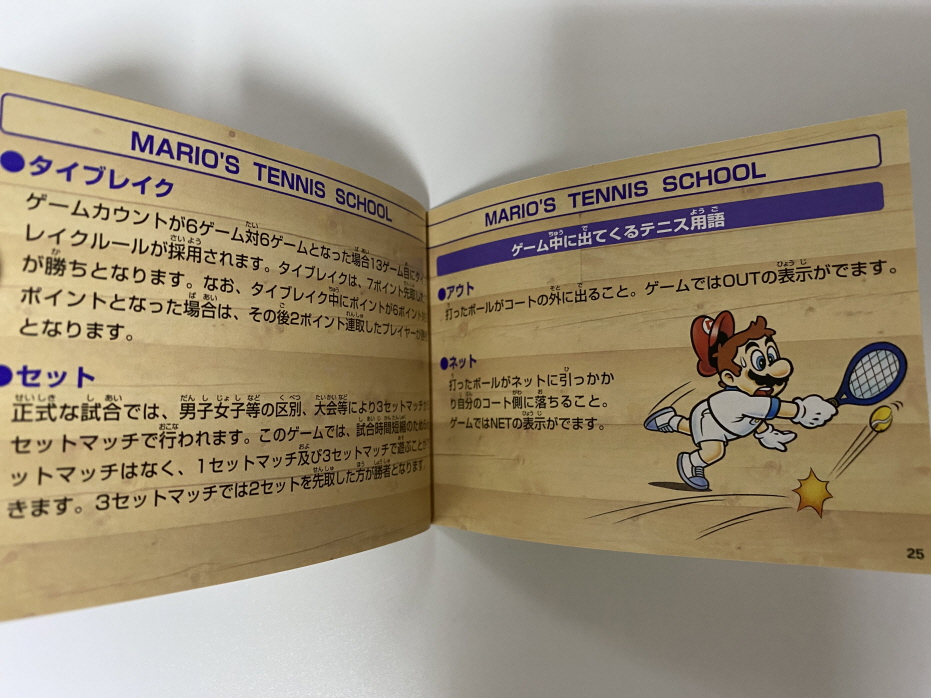 MARIO'S TENNIS SCHOOL
●タイブレイク
ゲームカウントが6ゲーム対6ゲームとなった場合13ゲーム目にタイ
レイクルールが採用されます。タイブレイクは、7ポイント先取した
が勝ちとなります。なお、タイブレイク中にポイントが6ポイント
ポイントとなった場合は、その後2ポイント連取したプレイヤーが
となります。
●セット
正式な試合では、男子女子等の区別、大会等により3セットマッチか
セットマッチで行われます。このゲームでは、試合時間短縮のため
ットマッチはなく、1セットマッチ及び3セットマッチで遊ぶことが
きます。3セットマッチでは2セットを先取した方が勝者となります。
MARIO'S TENNIS SCHOOL
ゲーム中に出てくるテニス用語
●アウト
打ったボールがコートの外に出ること。ゲームではOUTの表示がでます。
●ネット
打ったボールがネットに引っかか
り自分のコート側に落ちること。
ゲームではNETの表示がでます。
25